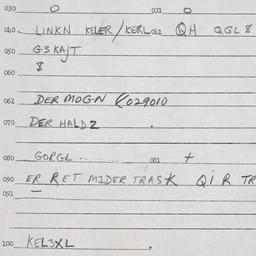 030 O 031 O
040 LINKN KELER/KERL 041 QH QGL8
050 G3KAJT
$
060
061 DERMOGN (029010
070 DER HALD2 .
080 GORGL ..... 081 +
090 ER RET MIDERTRASK QiR TR
091 —
100 KEL3XL .